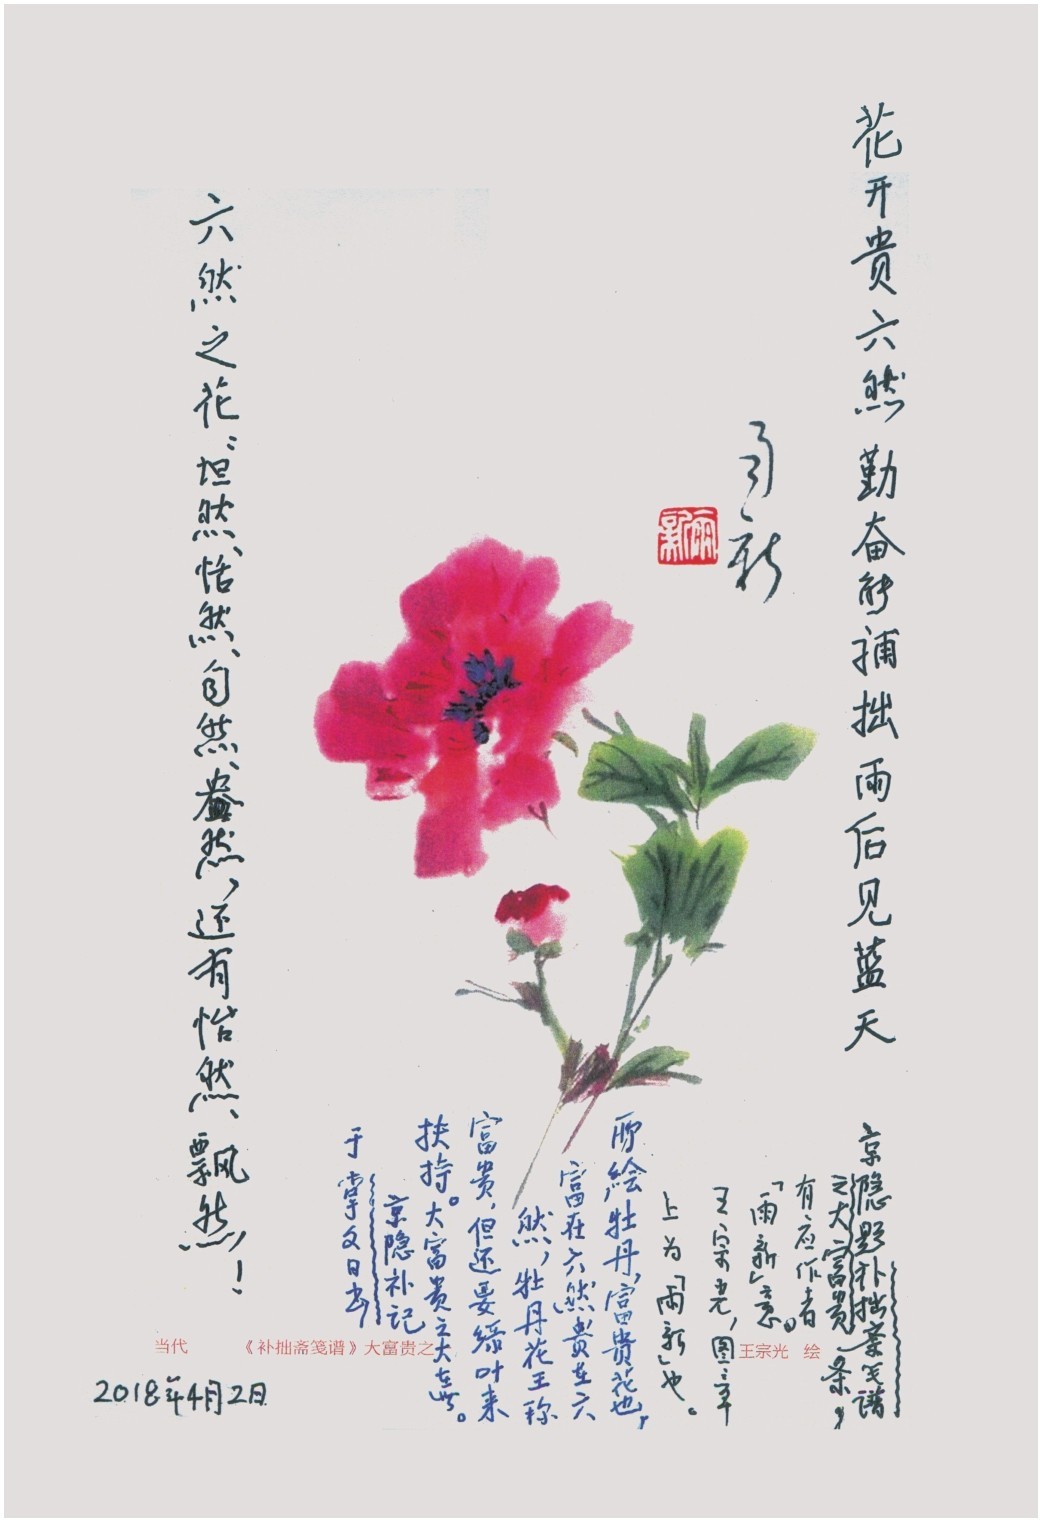 花开贵六然勤奋能补拙雨后见蓝天
京隐题补拙斋笺谱
之大富贵条，
有应作者
「雨新」意。
王宗光，图章
上为「雨新」也。
雨新
雨新
所绘牡丹，富贵花也，
富在六然，贵在六
然，牡丹花王称
富贵，但还要绿叶来
扶持。大富贵之大在此。
京隐补记
于掌文日出
六然之花：坦然、恬然、自然、盎然，还有怡然、飘然！
当代 《补拙斋笺谱》大富贵之 王宗光 绘
2018年4月2日